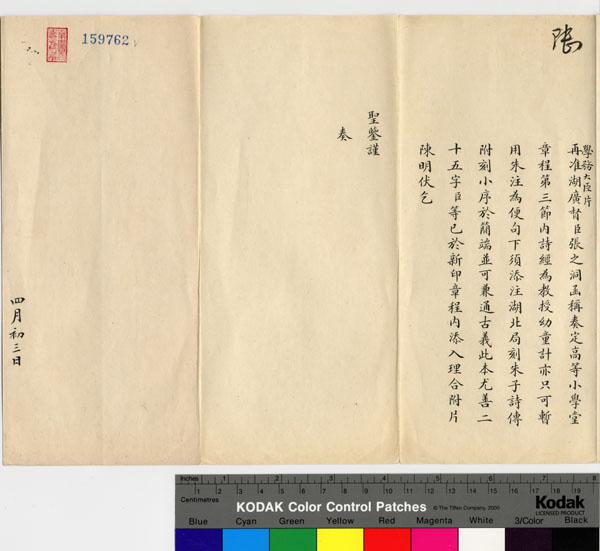 學務大臣片
再准湖廣督臣張之洞函稱奏定高等小學堂
章程第三節內詩經為教授幼童計亦只可暫
用朱注為便句下須添注湖北局刻朱子詩傳
附刻小序於簡端並可兼通古義此本尤善二
十五字臣等已於新印章程內添入理合附片
陳明伏乞
聖鑒謹
奏
四月初三日
159762
Inches 1 2 3 4 5 6 7 8
Centimetres 1 2 3 4 5 6 7 8 9 10 11 12 13 14 15 16 17 18 19
KODAK Color Control Patches
© The Tiffen Company, 2000
Kodak
LICENSED PRODUCT
Blue Cyan Green Yellow Red Magenta White 3/Color Black